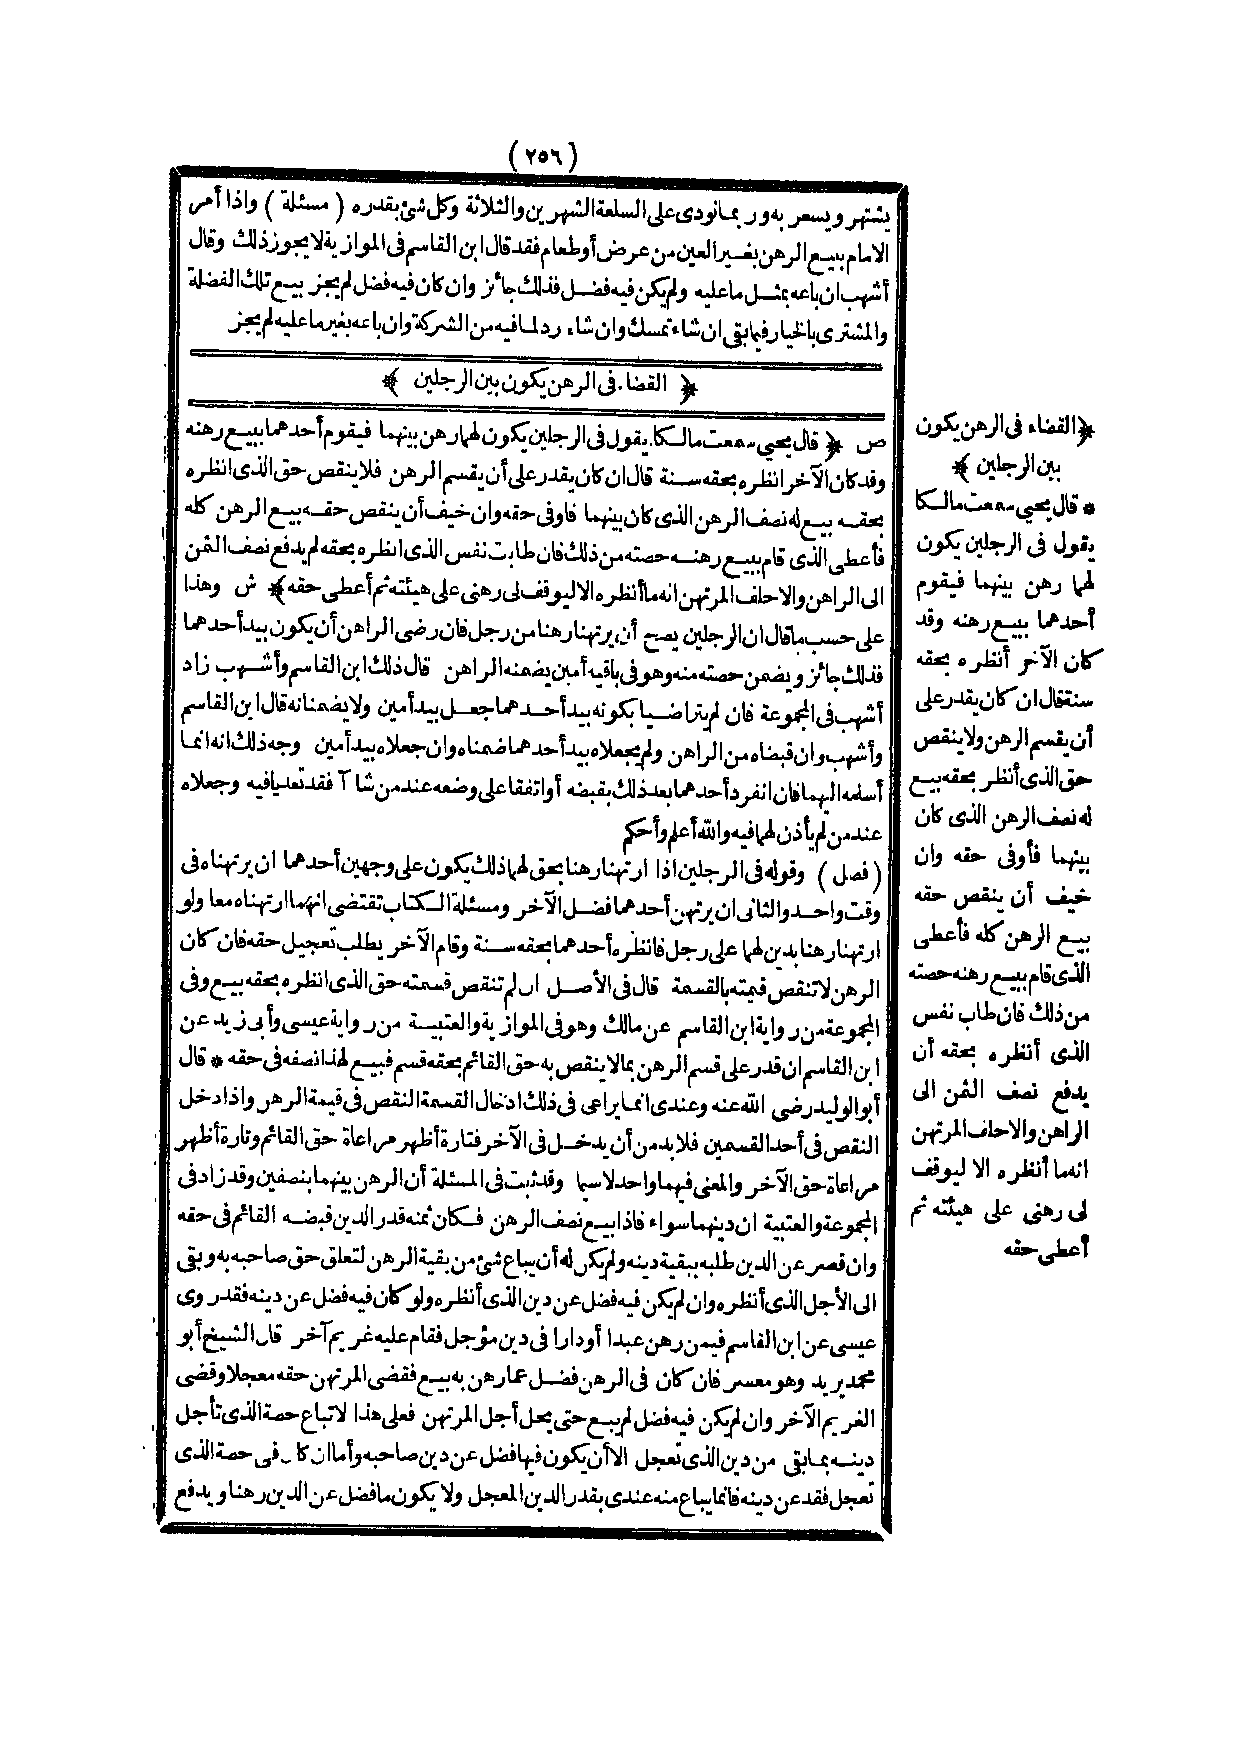 (٢٥٦)
يشتهر ويسعر به وربما نودى على السلعة الشهرين والثلاثة وكل شئ بقدره (مسئلة) واذا أمر
الامام ببيع الرهن بغير العين من عرض أوطعام فقد قال ابن القاسم فى الموازية لا يجوز ذلك وقال
أشهب ان باعه بمثل ما عليه ولم يكن فيه فضل فذلك جائز وان كان فيه فضل لم يجز بيع تلك الفضلة
والمشترى بالخيار فيما بقى ان شاء تمسك وان شاء رد لما فيه من الشركة وان باعه بغير ما عليه لم يجز
﴿ القضاء فى الرهن يكون بين الرجلين ﴾
ص ﴿ قال يحيى سمعت مالكا يقول فى الرجلين يكون لهما رهن بينهما فيقوم أحدهما ببيع رهنه
وقد كان الآخر انظره بحقه سنة قال ان كان يقدر على أن يقسم الرهن فلا ينقص حق الذى انظره
بحقه بيع له نصف الرهن الذى كان بينهما فاوفى حقه وان خيف أن ينقص حقه بيع الرهن كله
فأعطى الذى قام ببيع رهنه حصته من ذلك فان طابت نفس الذى انظره بحقه لم يدفع نصف الثمن
الى الراهن والا حلف المرتهن انه ما أنظره الا ليوقف لى رهنى على هيئته ثم أعطى حقه ﴾ ش وهذا
على حسب ما قال ان الرجلين يصح أن يرتهنا رهنا من رجل فان رضى الراهن أن يكون بيد أحدهما
فذلك جائز ويضمن حصته منه وهو فى باقيه أمين يضمنه الراهن قال ذلك ابن القاسم وأشهب زاد
أشهب فى المجموعة فان لم يتراضيا بكونه بيد أحدهما جعل بيد أمين ولا يضمنانه قال ابن القاسم
وأشهب وان قبضاه من الراهن ولم يجعلاه بيد أحدهما ضمناه وان جعلاه بيد أمين وجه ذلك انه انما
أسلمه اليهما فان انفرد أحدهما بعد ذلك بقبضه أو اتفقا على وضعه عند من شاآ فقد تعديا فيه وجعلاه
عند من لم يأذن لهما فيه والله أعلم وأحكم
(فصل) وقوله فى الرجلين اذا ارتهنا رهنا بحق لهما ذلك يكون على وجهين أحدهما ان يرتهناه فى
وقت واحد والثانى ان يرتهن أحدهما فضل الآخر ومسئلة الكتاب تقتضى انهما ارتهناه معا ولو
ارتهنا رهنا بدين لهما على رجل فانظره أحدهما بحقه سنة وقام الآخر يطلب تعجيل حقه فان كان
الرهن لا تنقص قيمته بالقسمة قال فى الأصل ان لم تنقص قسمته حق الذى انظره بحقه بيع وفى
المجموعة من رواية ابن القاسم عن مالك وهو فى الموازية والعتبية من رواية عيسى وأبى زيد عن
ابن القاسم ان قدر على قسم الرهن بما لا ينقص به حق القائم بحقه قسم فبيع لهذا نصفه فى حقه * قال
أبو الوليد رضى الله عنه وعندى انما يراعى فى ذلك ادخال القسمة النقص فى قيمة الرهن واذا دخل
النقص فى أحد القسمين فلا بد من أن يدخل فى الآخر فتارة أظهر مراعاة حق القائم وتارة أظهر
مراعاة حق الآخر والمعنى فيهما واحد لا سيما وقد ثبت فى المسئلة أن الرهن بينهما بنصفين وقد زاد فى
المجموعة والعتبية ان دينهما سواء فاذا بيع نصف الرهن فكان ثمنه قدر الدين قبضه القائم فى حقه
وان قصر عن الدين طلبه ببقية دينه ولم يكن له أن يباع شئ من بقية الرهن لتعلق حق صاحبه به وبقى
الى الأجل الذى أنظره وان لم يكن فيه فضل عن دين الذى أنظره ولو كان فيه فضل عن دينه فقد روى
عيسى عن ابن القاسم فيمن رهن عبدا أو دارا فى دين مؤجل فقام عليه غريم آخر قال الشيخ أبو
محمد يريد وهو معسر فان كان فى الرهن فضل عما رهن به بيع فقضى المرتهن حقه معجلا وقضى
الغريم الآخر وان لم يكن فيه فضل لم يبع حتى يحل أجل المرتهن فعلى هذا لا تباع حصة الذى تأجل
دينه بما بقى من دين الذى تعجل الا أن يكون فيها فضل عن دين صاحبه وأما ان كان فى حصة الذى
تعجل فقد عن دينه فانما يباع منه عندى بقدر الدين المعجل ولا يكون ما فضل عن الدين رهنا ويدفع
﴿القضاء فى الرهن يكون
بين الرجلين ﴾
* قال يحيى سمعت مالكا
يقول فى الرجلين يكون
لهما رهن بينهما فيقوم
أحدهما ببيع رهنه وقد
كان الآخر أنظره بحقه
سنة قال ان كان يقدر على
أن يقسم الرهن ولا ينقص
حق الذى أنظر بحقه بيع
له نصف الرهن الذى كان
بينهما فأوفى حقه وان
خيف أن ينقص حقه
بيع الرهن كله فأعطى
الذى قام ببيع رهنه حصته
من ذلك فان طاب نفس
الذى أنظره بحقه أن
يدفع نصف الثمن الى
الراهن والا حلف المرتهن
انه ما أنظره الا ليوقف
لى رهنى على هيئته ثم
أعطى حقه